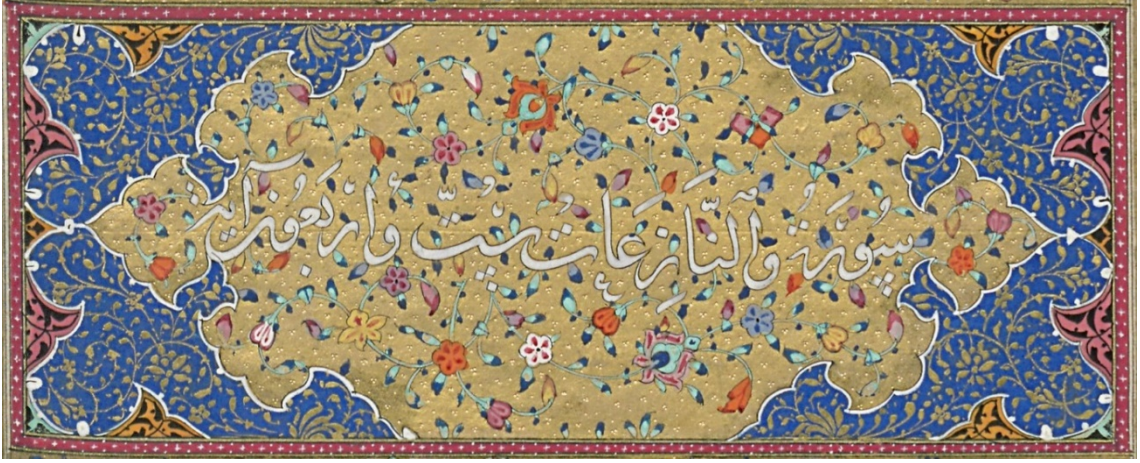 سُورَةُ وَالنَّازِعَاتِ سِتٌّ وَأَرْبَعُونَ آيَة